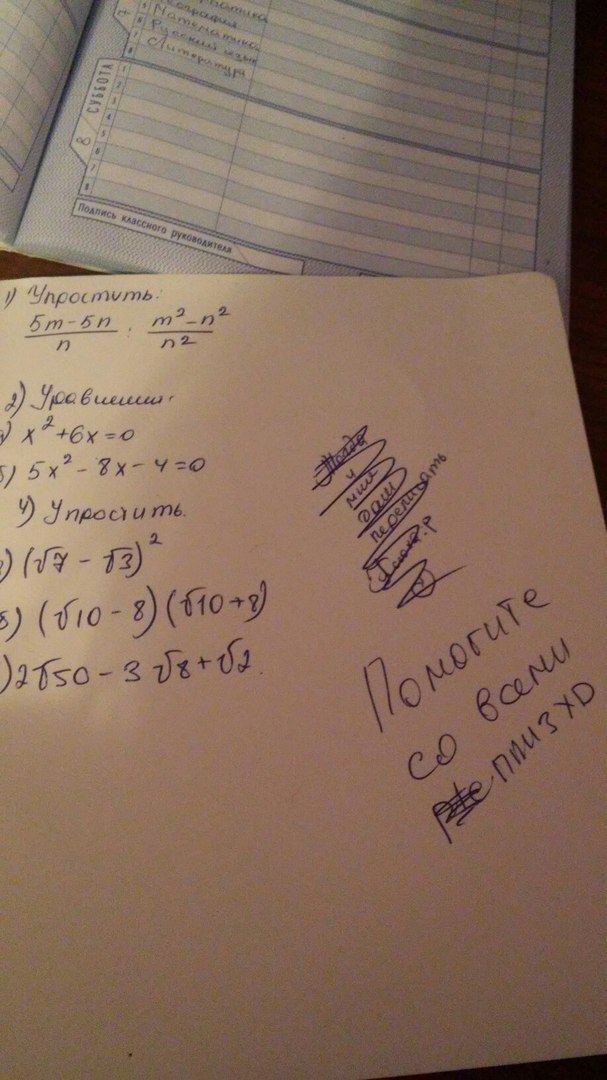 География
Математика
Русский язык
Литература
8 СУББОТА
1
2
3
4
5
6
7
8
Подпись классного руководителя
1) Упростить:
5m-5n/n : m²-n²/n²
2) Уравнения:
) x²+6x=0
б) 5x²-8x-4=0
4) Упростить.
) (√7-√3)²
б) (√10-8)(√10+8)
) 2√50-3√8+√2.
Помогите
со всеми
плиз XD